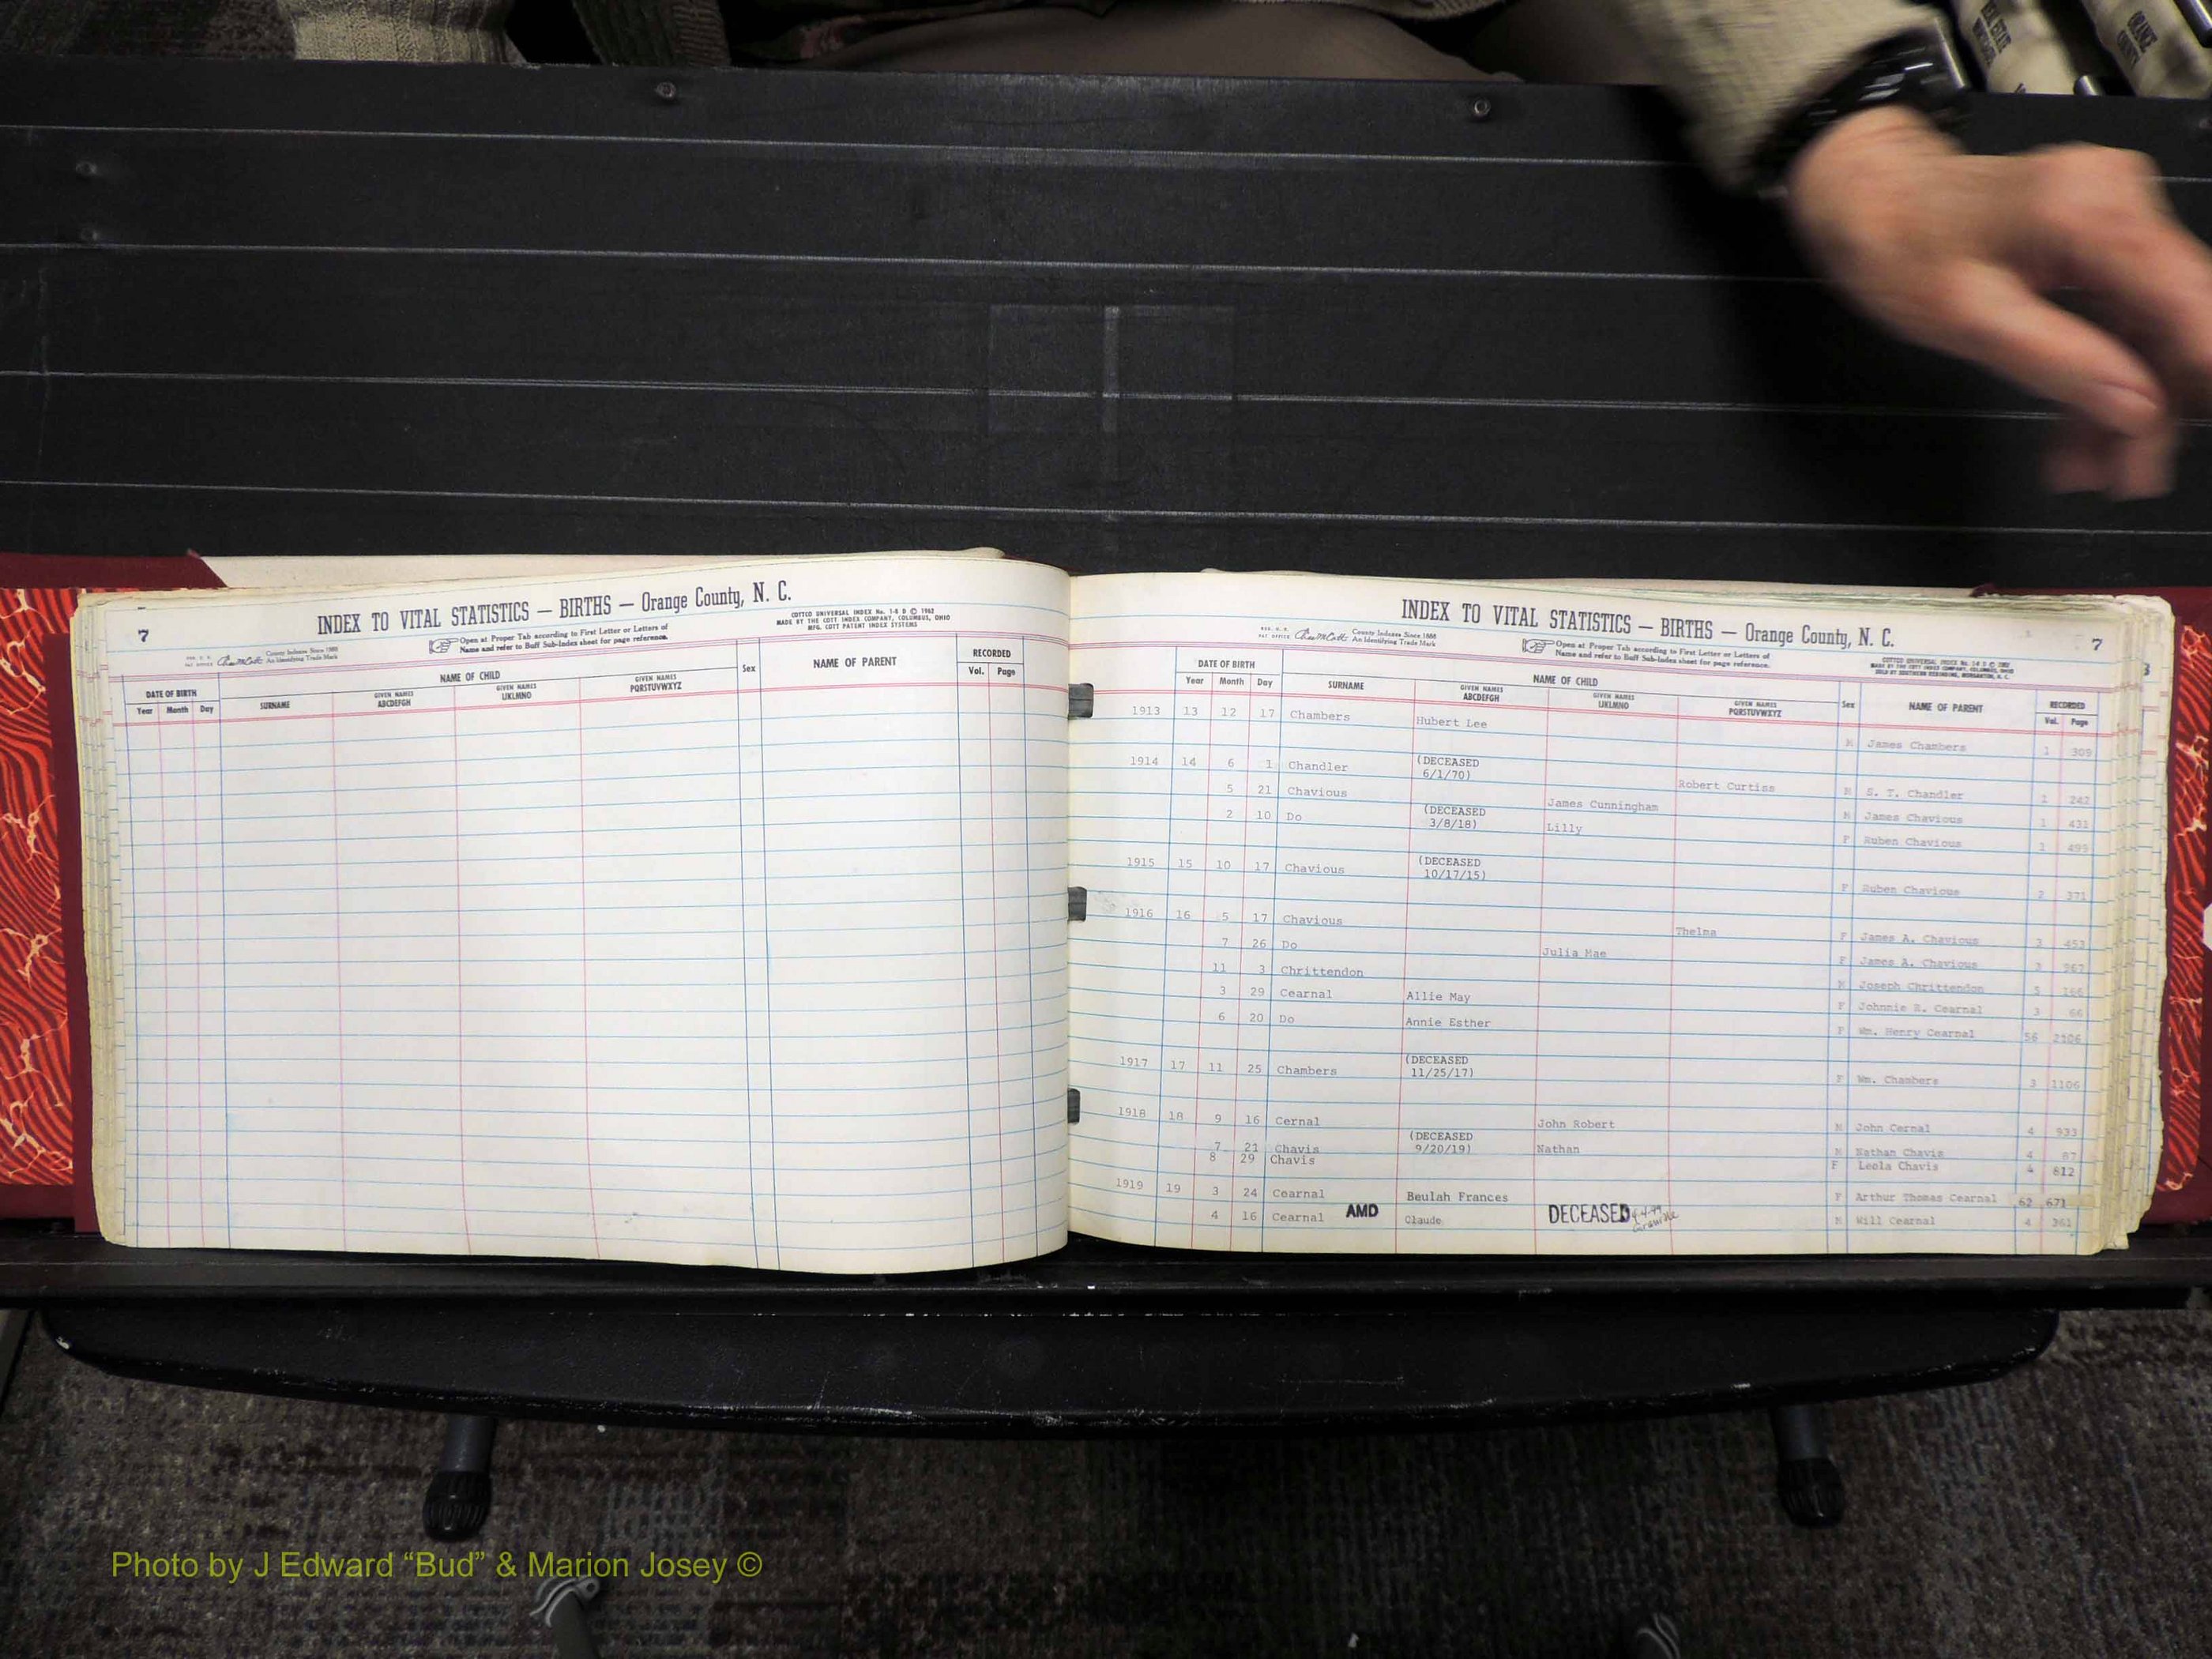 7
INDEX TO VITAL STATISTICS — BIRTHS — Orange County, N. C.
COTTCO UNIVERSAL INDEX No. 1-8 D © 1962
MADE BY THE COTT INDEX COMPANY, COLUMBUS, OHIO
MFG. COTT PATENT INDEX SYSTEMS
County Indexes Since 1888
An Identifying Trade Mark
Open at Proper Tab according to First Letter or Letters of
Name and refer to Buff Sub-Index sheet for page reference.
DATE OF BIRTH NAME OF CHILD Sex NAME OF PARENT RECORDED
Year Month Day SURNAME GIVEN NAMES ABCDEFGH GIVEN NAMES IJKLMNO GIVEN NAMES PQRSTUVWXYZ Vol. Page
INDEX TO VITAL STATISTICS — BIRTHS — Orange County, N. C.
7
County Indexes Since 1888
An Identifying Trade Mark
Open at Proper Tab according to First Letter or Letters of
Name and refer to Buff Sub-Index sheet for page reference.
DATE OF BIRTH NAME OF CHILD Sex NAME OF PARENT RECORDED
Year Month Day SURNAME GIVEN NAMES ABCDEFGH GIVEN NAMES IJKLMNO GIVEN NAMES PQRSTUVWXYZ Vol. Page
1913 13 12 17 Chambers Hubert Lee M James Chambers 1 309
1914 14 6 1 Chandler (DECEASED 6/1/70) Robert Curtiss M S. T. Chandler 1 242
5 21 Chavious James Cunningham M James Chavious 1 431
2 10 Do (DECEASED 3/8/18) Lilly F Ruben Chavious 1 499
1915 15 10 17 Chavious (DECEASED 10/17/15) F Ruben Chavious 2 371
1916 16 5 17 Chavious Thelma F James A. Chavious 3 453
7 26 Do Julia Mae F James A. Chavious 3
11 3 Chrittendon M Joseph Chrittendon 5 166
3 29 Cearnal Allie May F Johnnie R. Cearnal 3 66
6 20 Do Annie Esther F Wm. Henry Cearnal 56 2106
1917 17 11 25 Chambers (DECEASED 11/25/17) F Wm. Chambers 3 1106
1918 18 9 16 Cernal John Robert M John Cernal 4 933
7 21 Chavis (DECEASED 9/20/19) Nathan M Nathan Chavis 4 87
8 29 Chavis F Leola Chavis 4 812
1919 19 3 24 Cearnal Beulah Frances F Arthur Thomas Cearnal 62 671
4 16 Cearnal AMD Claude DECEASED 4-4-99 M Will Cearnal 4 361
ORANGE COUNTY
Photo by J Edward “Bud” & Marion Josey ©